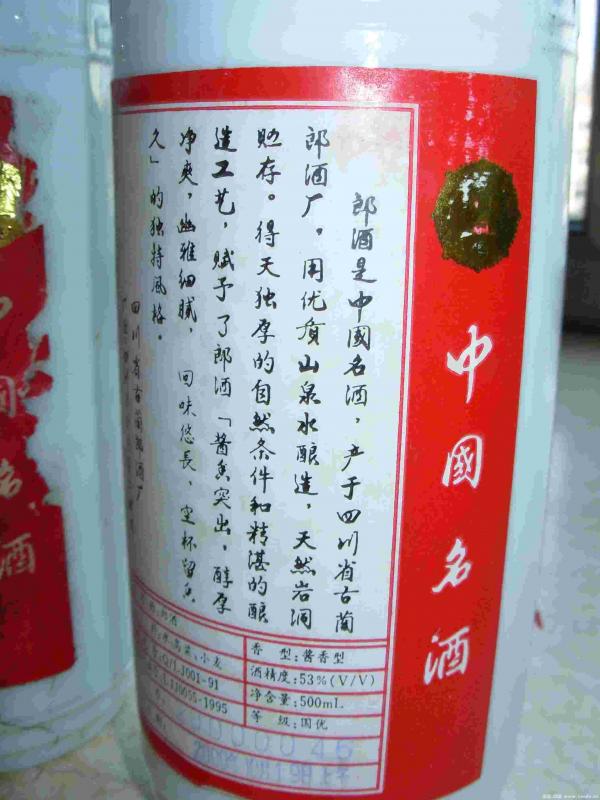 中國名酒
郎酒是中國名酒，产于四川省古蔺
郎酒厂。用优质山泉水酿造，天然岩洞
贮存。得天独厚的自然条件和精湛的酿
造工艺，赋予了郎酒「酱香突出，醇厚
净爽，幽雅细腻，回味悠長，空杯留香
久」的独特風格。
四川省古蔺郎酒厂
郎酒
高粱、小麦
Q/LJ001-91
1995
香 型：酱香型
酒精度：53%(V/V)
净含量：500mL
等 级：国优
名
酒